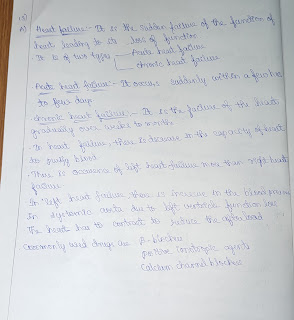 15)
A) Heart failure:- It is the sudden failure of the function of
heart leading to its loss of function
It is of two types Acute heart failure
chronic heart failure
Acute heart failure:- It occurs suddenly within a few hrs
to few days
chronic heart failure:- It is the failure of the heart
gradually over weeks to months
In heart failure, there is decrease in the capacity of heart
to purify blood
There is occurence of left heart failure more than right heart
failure
In left heart failure there is increase in the blood
In systemic aorta due to left ventricle function loss
The heart has to contract to reduce the after load
commonly used drugs are β-blockers
positive ionotropic agents
Calcium channel blockers